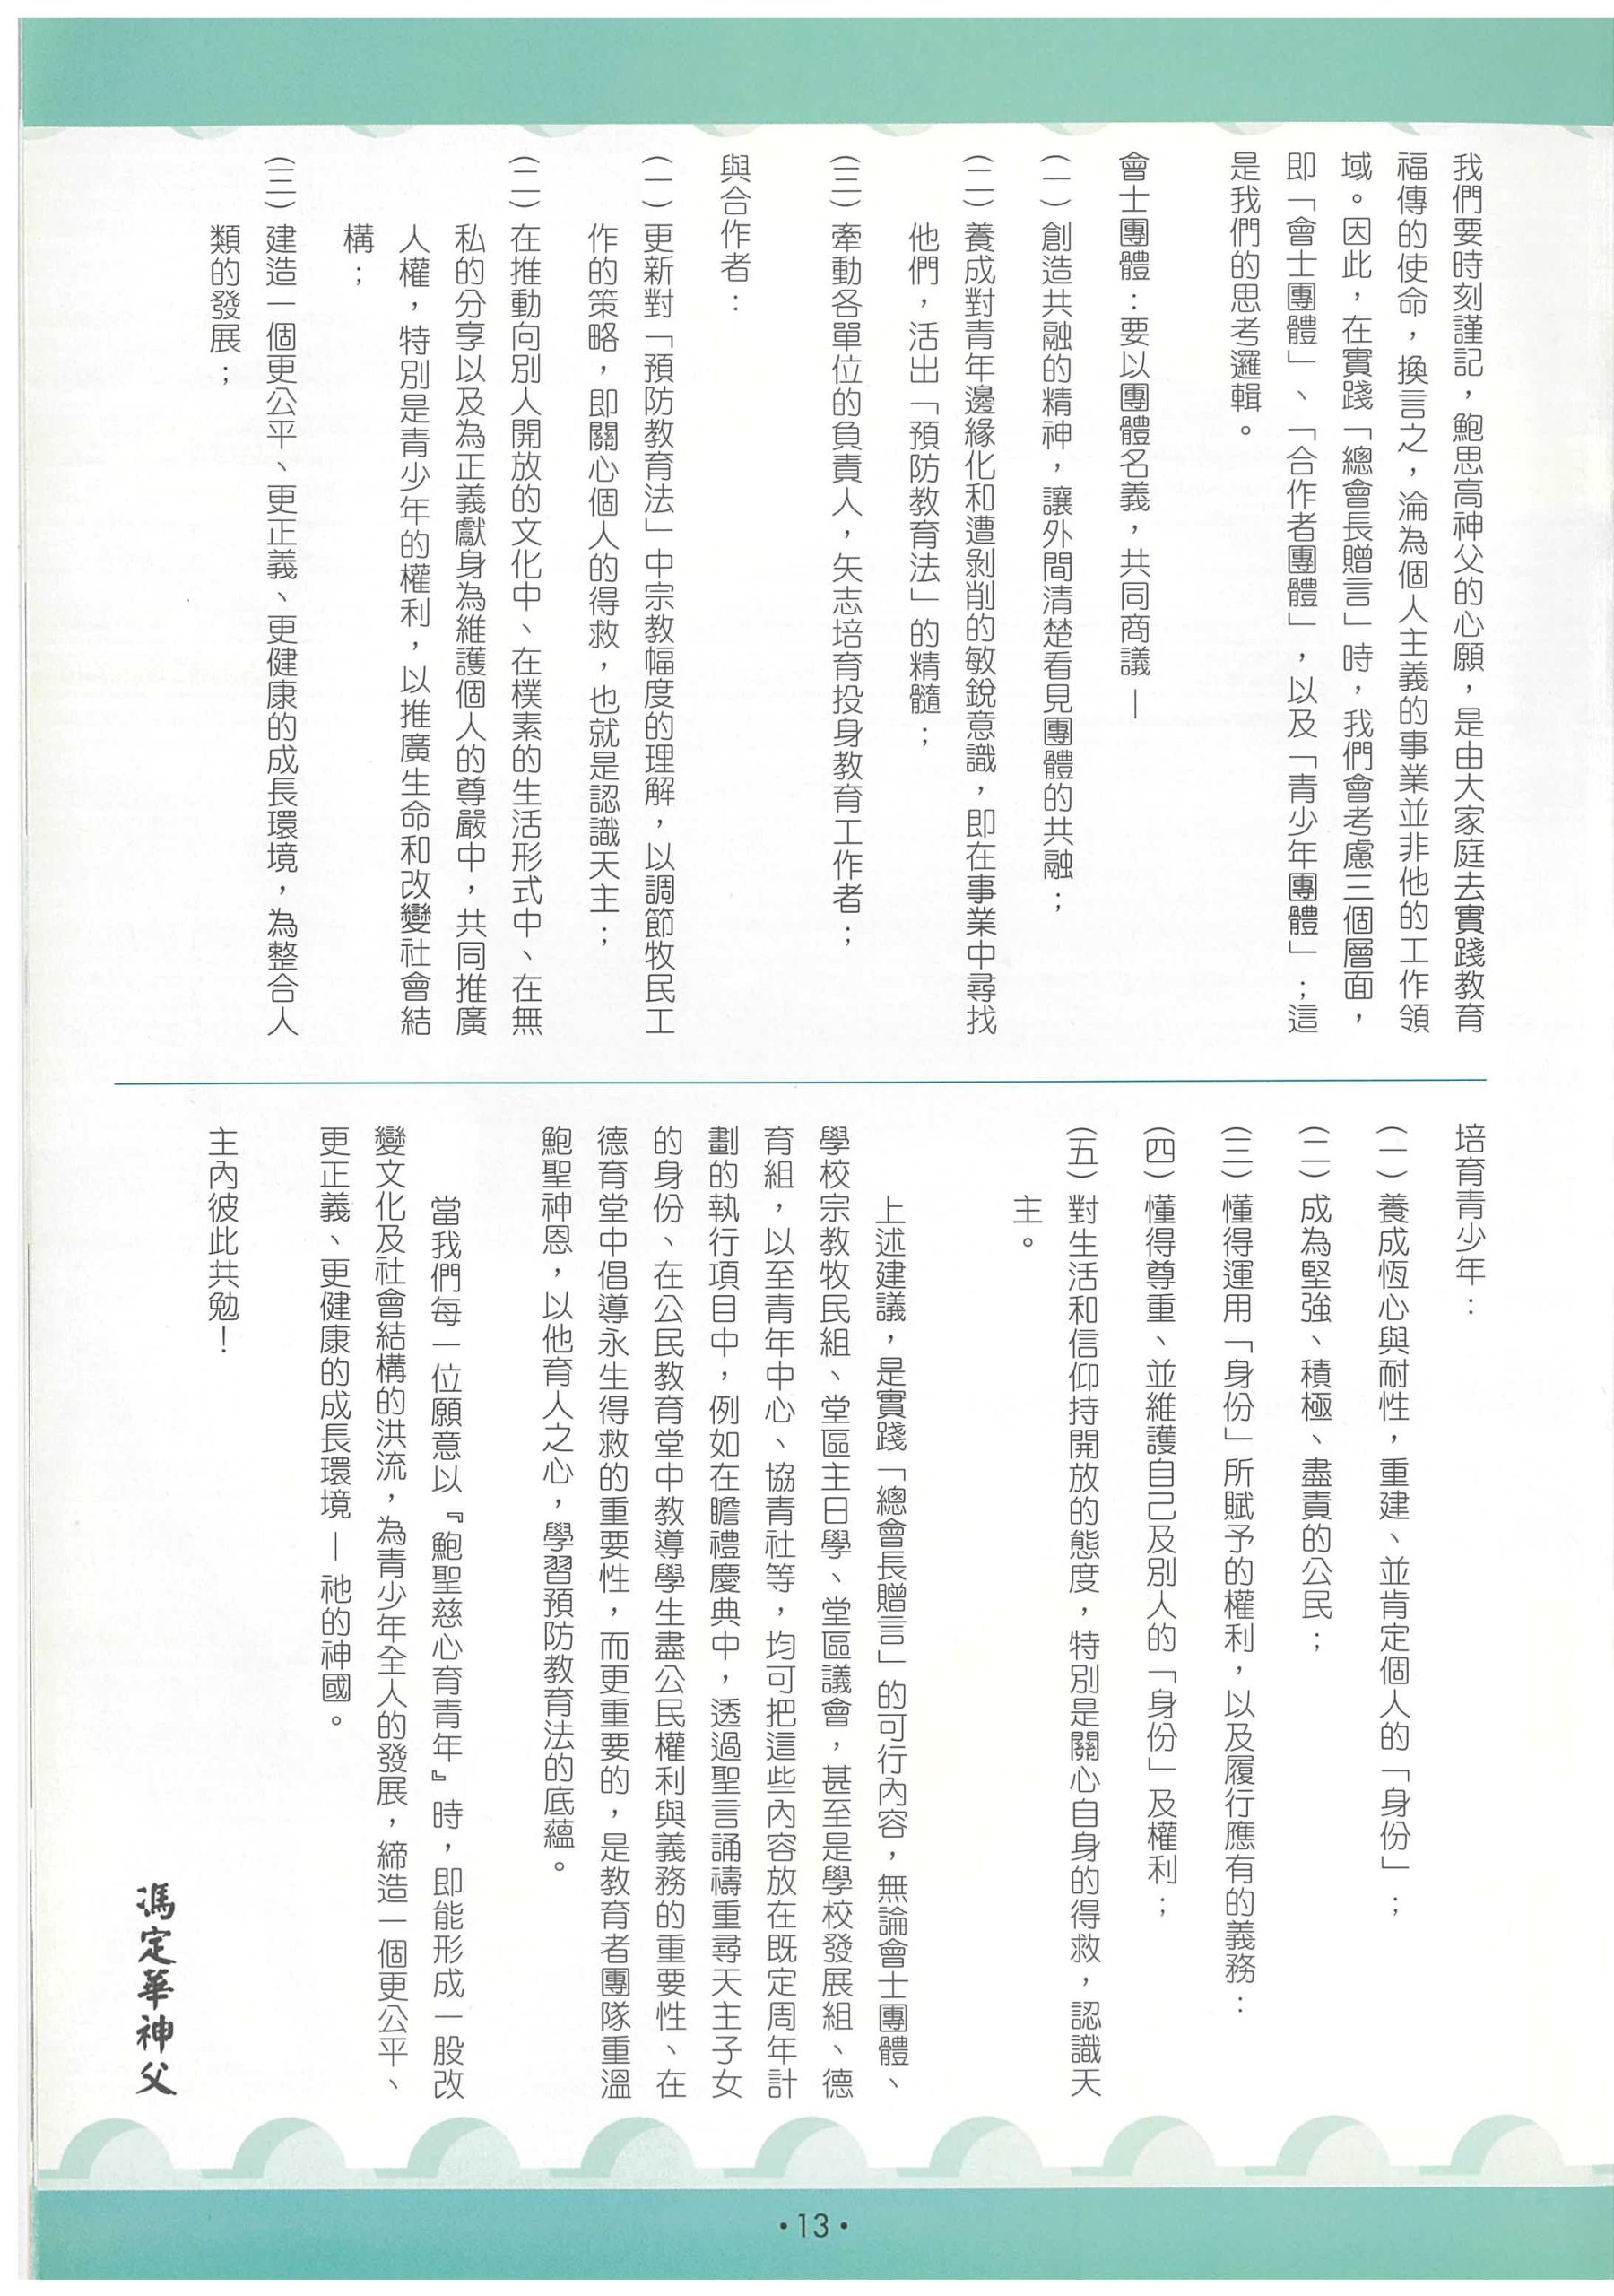 我們要時刻謹記，鮑思高神父的心願，是由大家庭去實踐教育
福傳的使命，換言之，淪為個人主義的事業並非他的工作領
域。因此，在實踐「總會長贈言」時，我們會考慮三個層面，
即「會士團體」、「合作者團體」，以及「青少年團體」；這
是我們的思考邏輯。
會士團體：要以團體名義，共同商議—
(一) 創造共融的精神，讓外間清楚看見團體的共融；
(二) 養成對青年邊緣化和遭剝削的敏銳意識，即在事業中尋找
他們，活出「預防教育法」的精髓；
(三) 牽動各單位的負責人，矢志培育投身教育工作者；
與合作者：
(一) 更新對「預防教育法」中宗教幅度的理解，以調節牧民工
作的策略，即關心個人的得救，也就是認識天主；
(二) 在推動向別人開放的文化中、在樸素的生活形式中、在無
私的分享以及為正義獻身為維護個人的尊嚴中，共同推廣
人權，特別是青少年的權利，以推廣生命和改變社會結
構；
(三) 建造一個更公平、更正義、更健康的成長環境，為整合人
類的發展；
培育青少年：
(一) 養成恆心與耐性，重建、並肯定個人的「身份」；
(二) 成為堅強、積極、盡責的公民；
(三) 懂得運用「身份」所賦予的權利，以及履行應有的義務：
(四) 懂得尊重、並維護自己及別人的「身份」及權利；
(五) 對生活和信仰持開放的態度，特別是關心自身的得救，認識天
主。
上述建議，是實踐「總會長贈言」的可行內容，無論會士團體、
學校宗教牧民組、堂區主日學、堂區議會，甚至是學校發展組、德
育組，以至青年中心、協青社等，均可把這些內容放在既定周年計
劃的執行項目中，例如在瞻禮慶典中，透過聖言誦禱重尋天主子女
的身份、在公民教育堂中教導學生盡公民權利與義務的重要性、在
德育堂中倡導永生得救的重要性，而更重要的，是教育者團隊重溫
鮑聖神恩，以他育人之心，學習預防教育法的底蘊。
當我們每一位願意以『鮑聖慈心育青年』時，即能形成一股改
變文化及社會結構的洪流，為青少年全人的發展，締造一個更公平、
更正義、更健康的成長環境—祂的神國。
主內彼此共勉！
馮定華神父
•13•